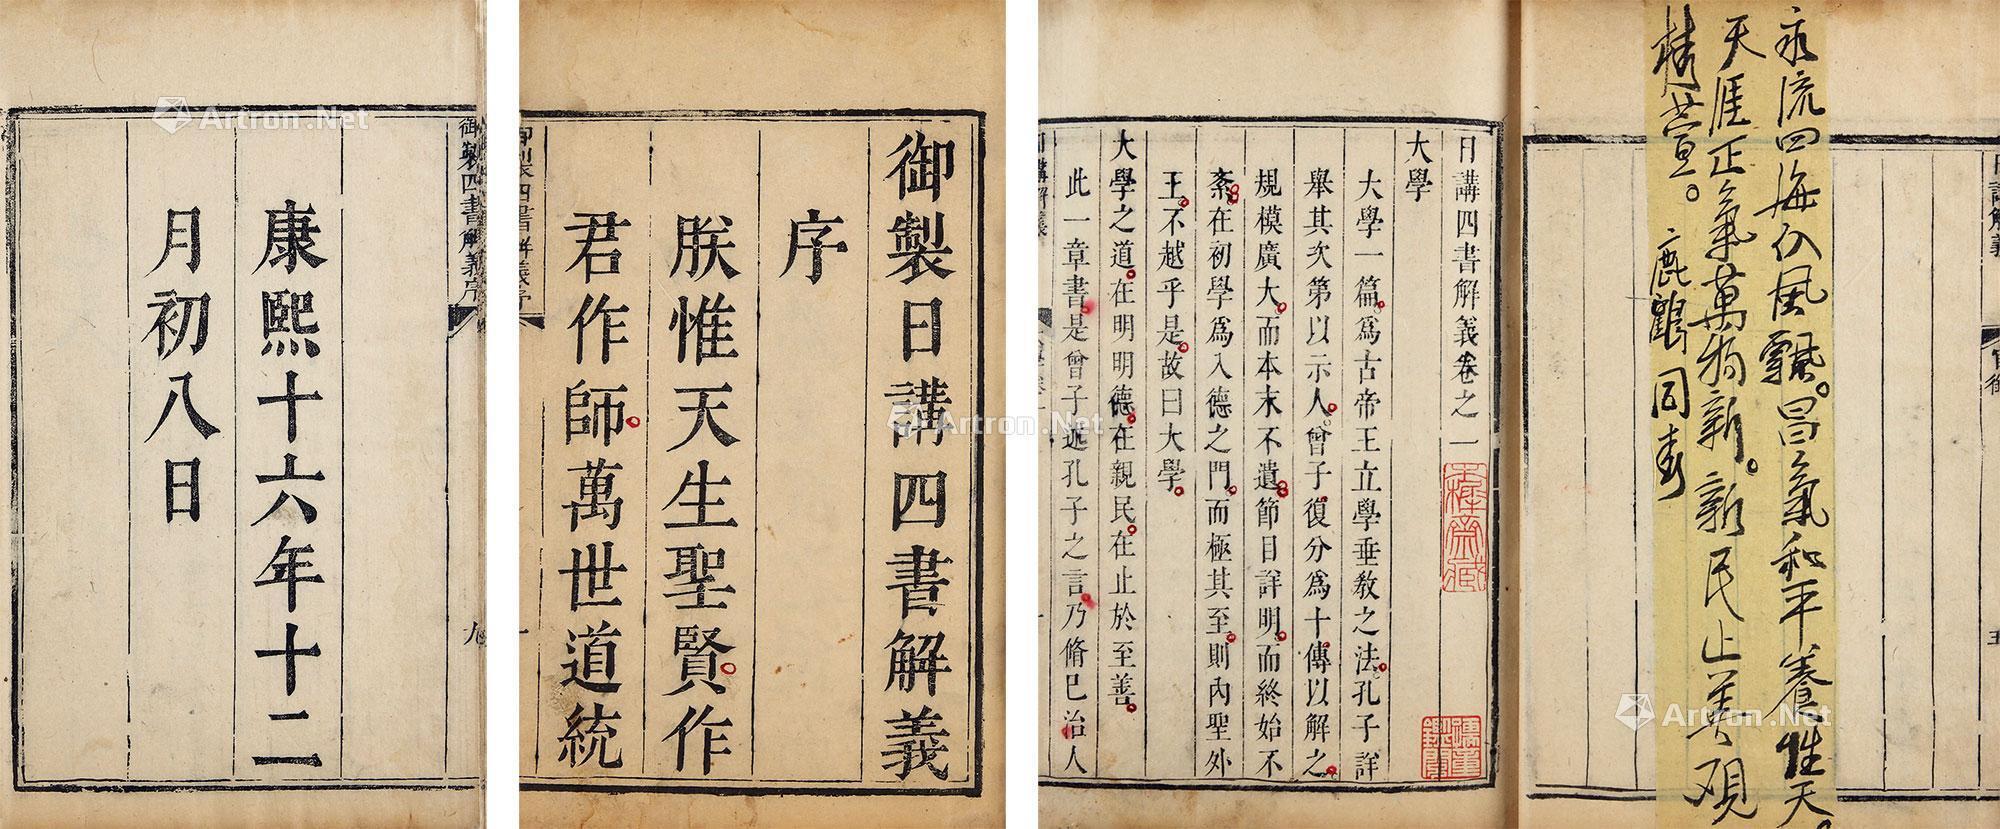 御製日講四書解義
序
朕惟天生聖賢作
君作師萬世道統
康熙十六年十二
月初八日
御製四書解義序
九
日講四書解義卷之一
大學
大學一篇為古帝王立學垂教之法孔子詳
舉其次第以示人曾子復分為十傳以解之
規模廣大而本末不遺節目詳明而終始不
紊在初學為入德之門而極其至則內聖外
王不越乎是故曰大學
大學之道在明明德在親民在止於至善
此一章書是曾子述孔子之言乃脩己治人
天涯正氣萬物新。新民止善
鹿鶴同春
Artron.Net
Artron.Net
Artron.Net